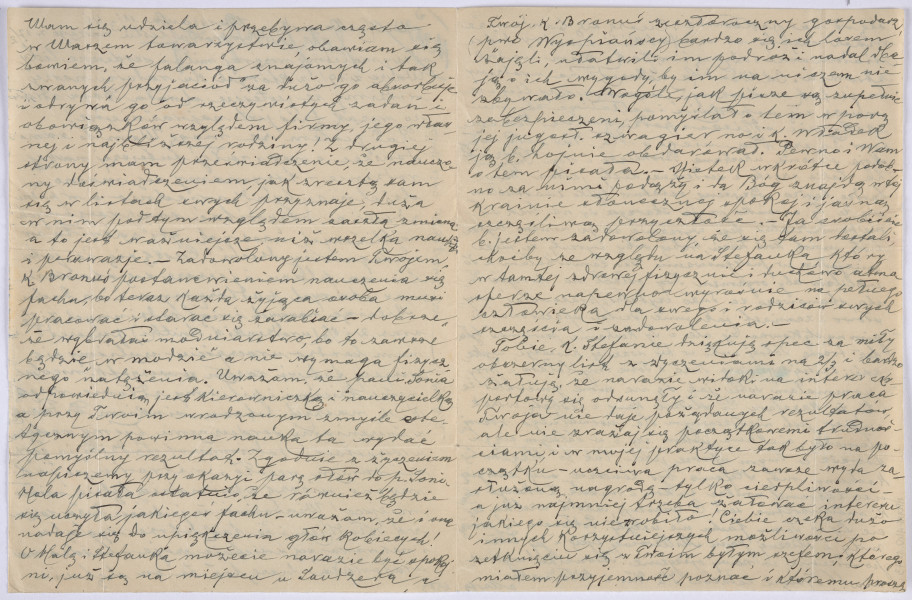 Wam się udziela i przebywa często
w Waszem towarzystwie, obawiam się
bowiem, że falanga znajomych i tak
zwanych przyjaciół za dużo go absorbuje
i odrywa go od rzeczywistych zadań i
obowiązków względem firmy, jego własnej
i najbliższej rodziny! Z drugiej
strony mam przeświadczenie, że nauczony
doświadczeniem, jak zresztą sam
się w listach swych przyznaje, duża
w nim pod tym względem zaszła zmiana
a to jest ważniejsze niż wszelka nauka
i perswazje. – Zadowolony jestem Twojem,
K. Bronuś postanowieniem nauczenia się
fachu, bo teraz każda żyjąca osoba musi
pracować i starać się zarabiać – dobrze,
że wybrałaś modniarstwo, bo to zawsze
będzie w modzie a nie wymaga fizycznego
natężenia. Uważam, że pani Tonia
odpowiednią jest kierowniczką i nauczycielką
a przy Twoim wrodzonym zmyśle estetycznym
powinna nauka ta wydać
pomyślny rezultat. Zgodnie z życzeniem
napiszemy przy okazji parę słów do p. Toni.
Hala pisała ostatnio, że również będzie
się uczyła jakiegoś fachu – uważam, że i ona
nadaje się do upiększenia głów kobiecych!
O Halę i Stefanka możecie narazie być spokojni,
już są na miejscu u
Twój, K. Bronuś zeszłoroczny gospodarz
bardzo się ich losem
zajęli, ułatwili im podróż i nadal dbają
o ich wygody, by im na niczem nie
zbywało. Wogóle, jak pisze są zupełnie
zabezpieczeni, pomyślał o tem w porę
jej szwagier no i k. Władek
ją b. hojnie obdarował. Pewno i Wam
o tem pisała. – Mietek wkrótce podobno
za nimi podąży i da Bóg znajdą w tej
krainie słonecznej spokój i jasną
szczęśliwą przyszłość. – Ja osobiście
b. jestem zadowolony, że się tam dostali,
choćby ze względu na Stefanka, który
w tamtej zdrowej fizycznie i duchowo atmosferze
napewno wyrośnie na pełnego
człowieka dla swego i rodziców swych
szczęścia i zadowolenia. –
Tobie, K. Stefanie dziękuję spec. za miły
obszerny list z życzeniami na 2/I i bardzo
żałuję, że narazie widok na interes eksportowy
się odsunęły i że narazie praca
Twoja nie daje pożądanych rezultatów,
ale nie zrażaj się początkowemi trudnościami,
i w mojej praktyce tak było na początku
– uczciwa praca zawsze wyda zasłużoną
nagrodę – tylko cierpliwości –
a już najmniej trzeba żałować interesu
jakiego się nie zrobiło! Ciebie czeka dużo
innych korzystniejszych możliwości po
zetknięciu się z Twoim byłym szefem, którego
miałem przyjemność poznać i któremu, proszę